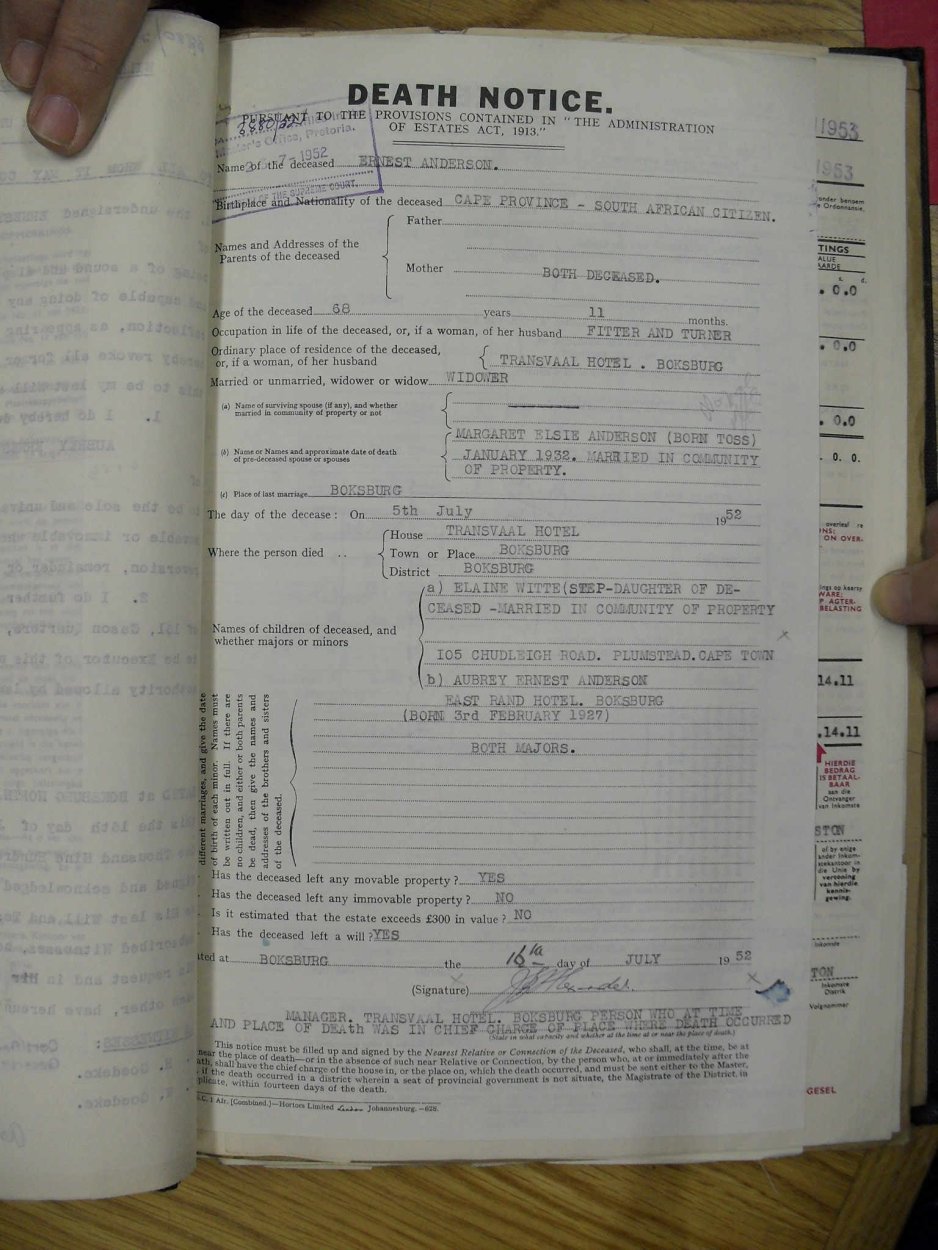 DEATH NOTICE.
PURSUANT TO THE PROVISIONS CONTAINED IN "THE ADMINISTRATION
OF ESTATES ACT, 1913."
Office, Pretoria.
7-1952
OF THE SUPREME COURT.
Name of the deceased ERNEST ANDERSON.
Birthplace and Nationality of the deceased CAPE PROVINCE - SOUTH AFRICAN CITIZEN.
Names and Addresses of the
Parents of the deceased
Father
Mother BOTH DECEASED.
Age of the deceased 68 years 11 months.
Occupation in life of the deceased, or, if a woman, of her husband FITTER AND TURNER
Ordinary place of residence of the deceased,
or, if a woman, of her husband TRANSVAAL HOTEL . BOKSBURG
Married or unmarried, widower or widow WIDOWER
(a) Name of surviving spouse (if any), and whether
married in community of property or not
(b) Name or Names and approximate date of death
of pre-deceased spouse or spouses
MARGARET ELSIE ANDERSON (BORN TOSS)
JANUARY 1932. MARRIED IN COMMUNITY
OF PROPERTY.
(c) Place of last marriage BOKSBURG
The day of the decease: On 5th July 1952
Where the person died ..
House TRANSVAAL HOTEL
Town or Place BOKSBURG
District BOKSBURG
Names of children of deceased, and
whether majors or minors
a) ELAINE WITTE(STEP-DAUGHTER OF DE-
CEASED -MARRIED IN COMMUNITY OF PROPERTY
105 CHUDLEIGH ROAD. PLUMSTEAD.CAPE TOWN
b) AUBREY ERNEST ANDERSON
EAST RAND HOTEL. BOKSBURG
(BORN 3rd FEBRUARY 1927)
BOTH MAJORS.
different marriages, and give the date
of birth of each minor. Names must
be written out in full. If there are
no children, and either or both parents
be dead, then give the names and
addresses of the brothers and sisters
of the deceased.
Has the deceased left any movable property? YES
Has the deceased left any immovable property? NO
Is it estimated that the estate exceeds £300 in value? NO
Has the deceased left a will? YES
ated at BOKSBURG the 16th day of JULY 1952
(Signature)
MANAGER. TRANSVAAL HOTEL. BOKSBURG PERSON WHO AT TIME
AND PLACE OF DEATH WAS IN CHIEF CHARGE OF PLACE WHERE DEATH OCCURRED
(State in what capacity and whether at the time at or near the place of death.)
This notice must be filled up and signed by the Nearest Relative or Connection of the Deceased, who shall, at the time, be at
near the place of death—or in the absence of such near Relative or Connection, by the person who, at or immediately after the
ath, shall have the chief charge of the house in, or the place on, which the death occurred, and must be sent either to the Master,
if the death occurred in a district wherein a seat of provincial government is not situate, the Magistrate of the District, in
plicate, within fourteen days of the death.
1 Afr. [Combined.]—Hortors Limited London Johannesburg.—628.
1953
1953
onder benoem
e Ordonnansie.
TINGS
ALUE
AARDE
s. d.
. 0.0
. 0.0
. 0.0
. 0. 0.
overleaf re
NS:
ON OVER-
ngs op keersy
WARE:
P AGTER-
BELASTING
14.11
.14.11
HIERDIE
BEDRAG
IS BETAAL-
BAAR
aan die
Ontvanger
van Inkomste
STON
of by enige
ander Inkom-
stekantoor in
die Unie by
vertoning
van hierdie
kennis-
gewing.
Inkomste
TON
Inkomste
Distrik
Volgnommer
GESEL